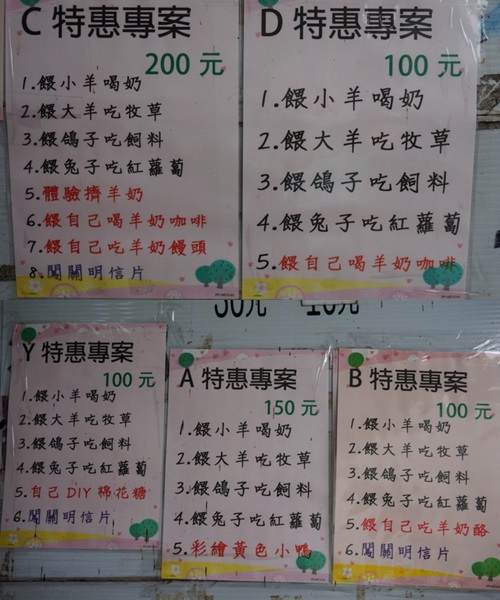 C 特惠專案
200 元
1.餵小羊喝奶
2.餵大羊吃牧草
3.餵鴿子吃飼料
4.餵兔子吃紅蘿蔔
5.體驗擠羊奶
6.餵自己喝羊奶咖啡
7.餵自己吃羊奶饅頭
8.闖關明信片
D 特惠專案
100 元
1.餵小羊喝奶
2.餵大羊吃牧草
3.餵鴿子吃飼料
4.餵兔子吃紅蘿蔔
5.餵自己喝羊奶咖啡
Y 特惠專案
100 元
1.餵小羊喝奶
2.餵大羊吃牧草
3.餵鴿子吃飼料
4.餵兔子吃紅蘿蔔
5.自己DIY棉花糖
6.闖關明信片
A 特惠專案
150 元
1.餵小羊喝奶
2.餵大羊吃牧草
3.餵鴿子吃飼料
4.餵兔子吃紅蘿蔔
5.彩繪黃色小鴨
B 特惠專案
100 元
1.餵小羊喝奶
2.餵大羊吃牧草
3.餵鴿子吃飼料
4.餵兔子吃紅蘿蔔
5.餵自己吃羊奶酪
6.闖關明信片